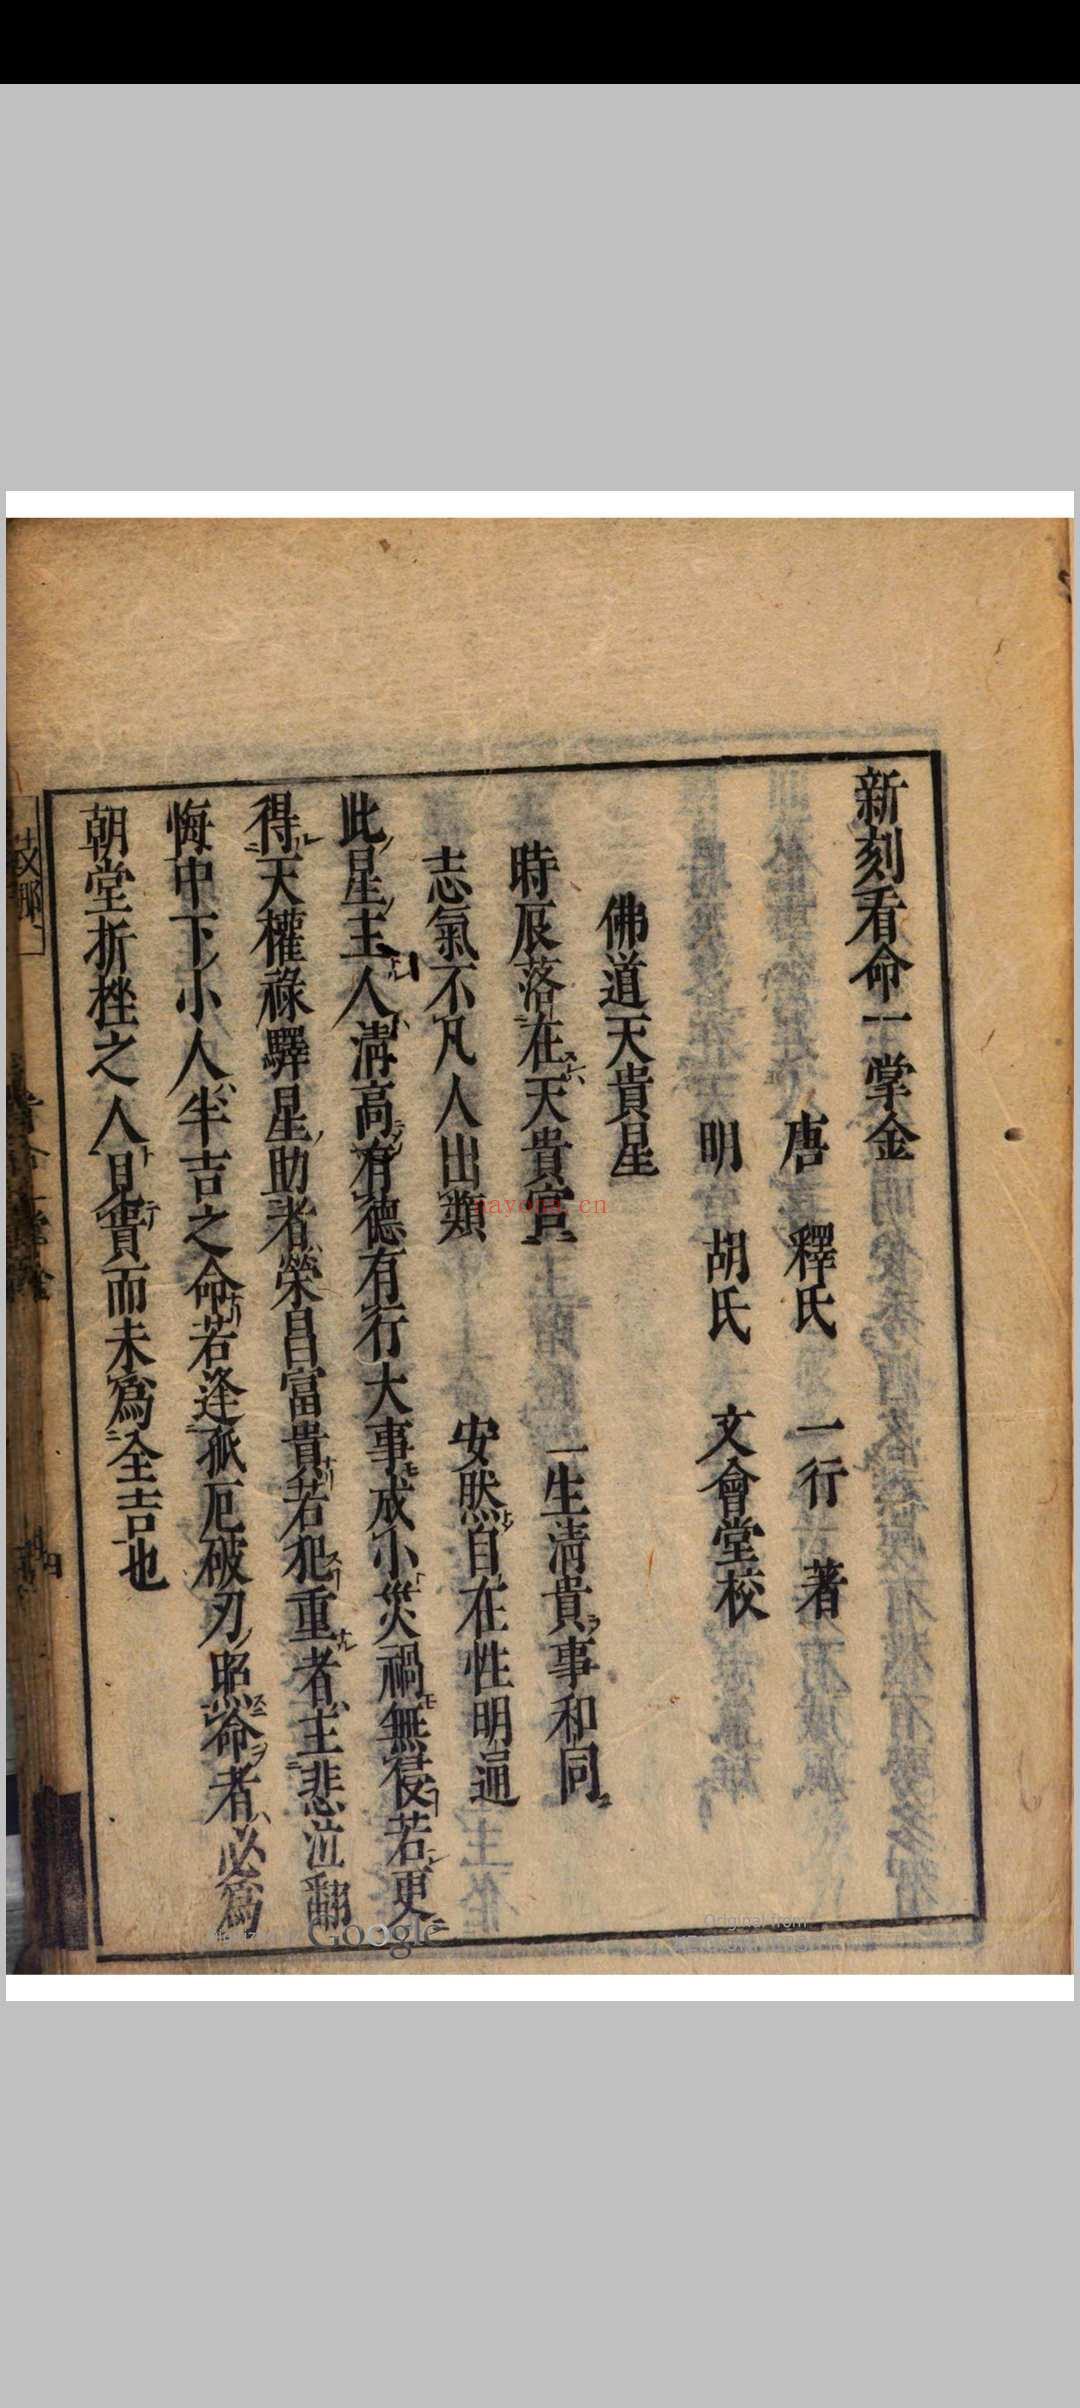 新刻看命一掌金
唐 釋氏 一行 著
明 胡氏 文會堂校
佛道天貴星
時辰落在天貴宮 一生清貴事和同
志氣不凡人出類 安然自在性明通
此星主人清高有德有行大事成小災禍無侵若更
得天權祿驛星助者榮昌富貴若犯重者主悲泣翻
悔中下小人半吉之命若逢孤厄破刃照命者必爲
朝堂折挫之人見貴而未爲全吉也
nayona.cn
Google
Original from